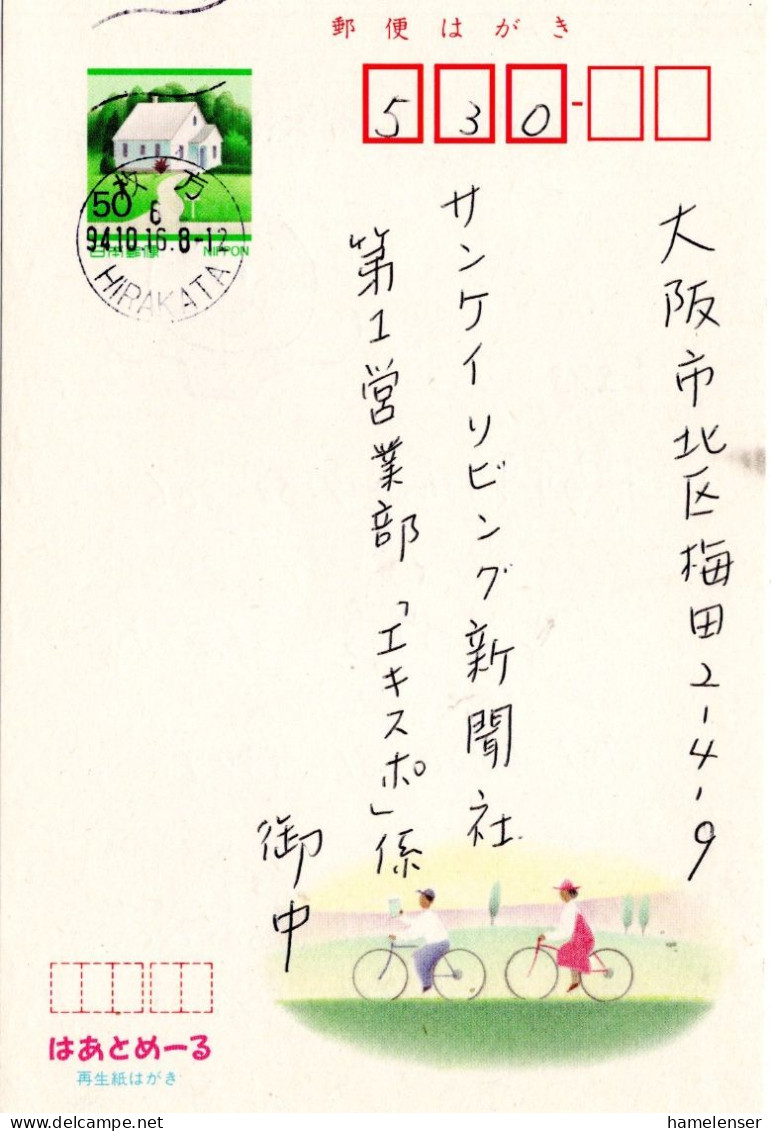 郵便はがき
530-
大阪市北区梅田2-4-9
サンケイリビング新聞社
第1営業部「エキスポ」係
御中
50
日本郵便 NIPPON
枚方
6
94.10.16.8-12
HIRAKATA
はあとめーる
再生紙はがき
delcampe.net
hamelenser